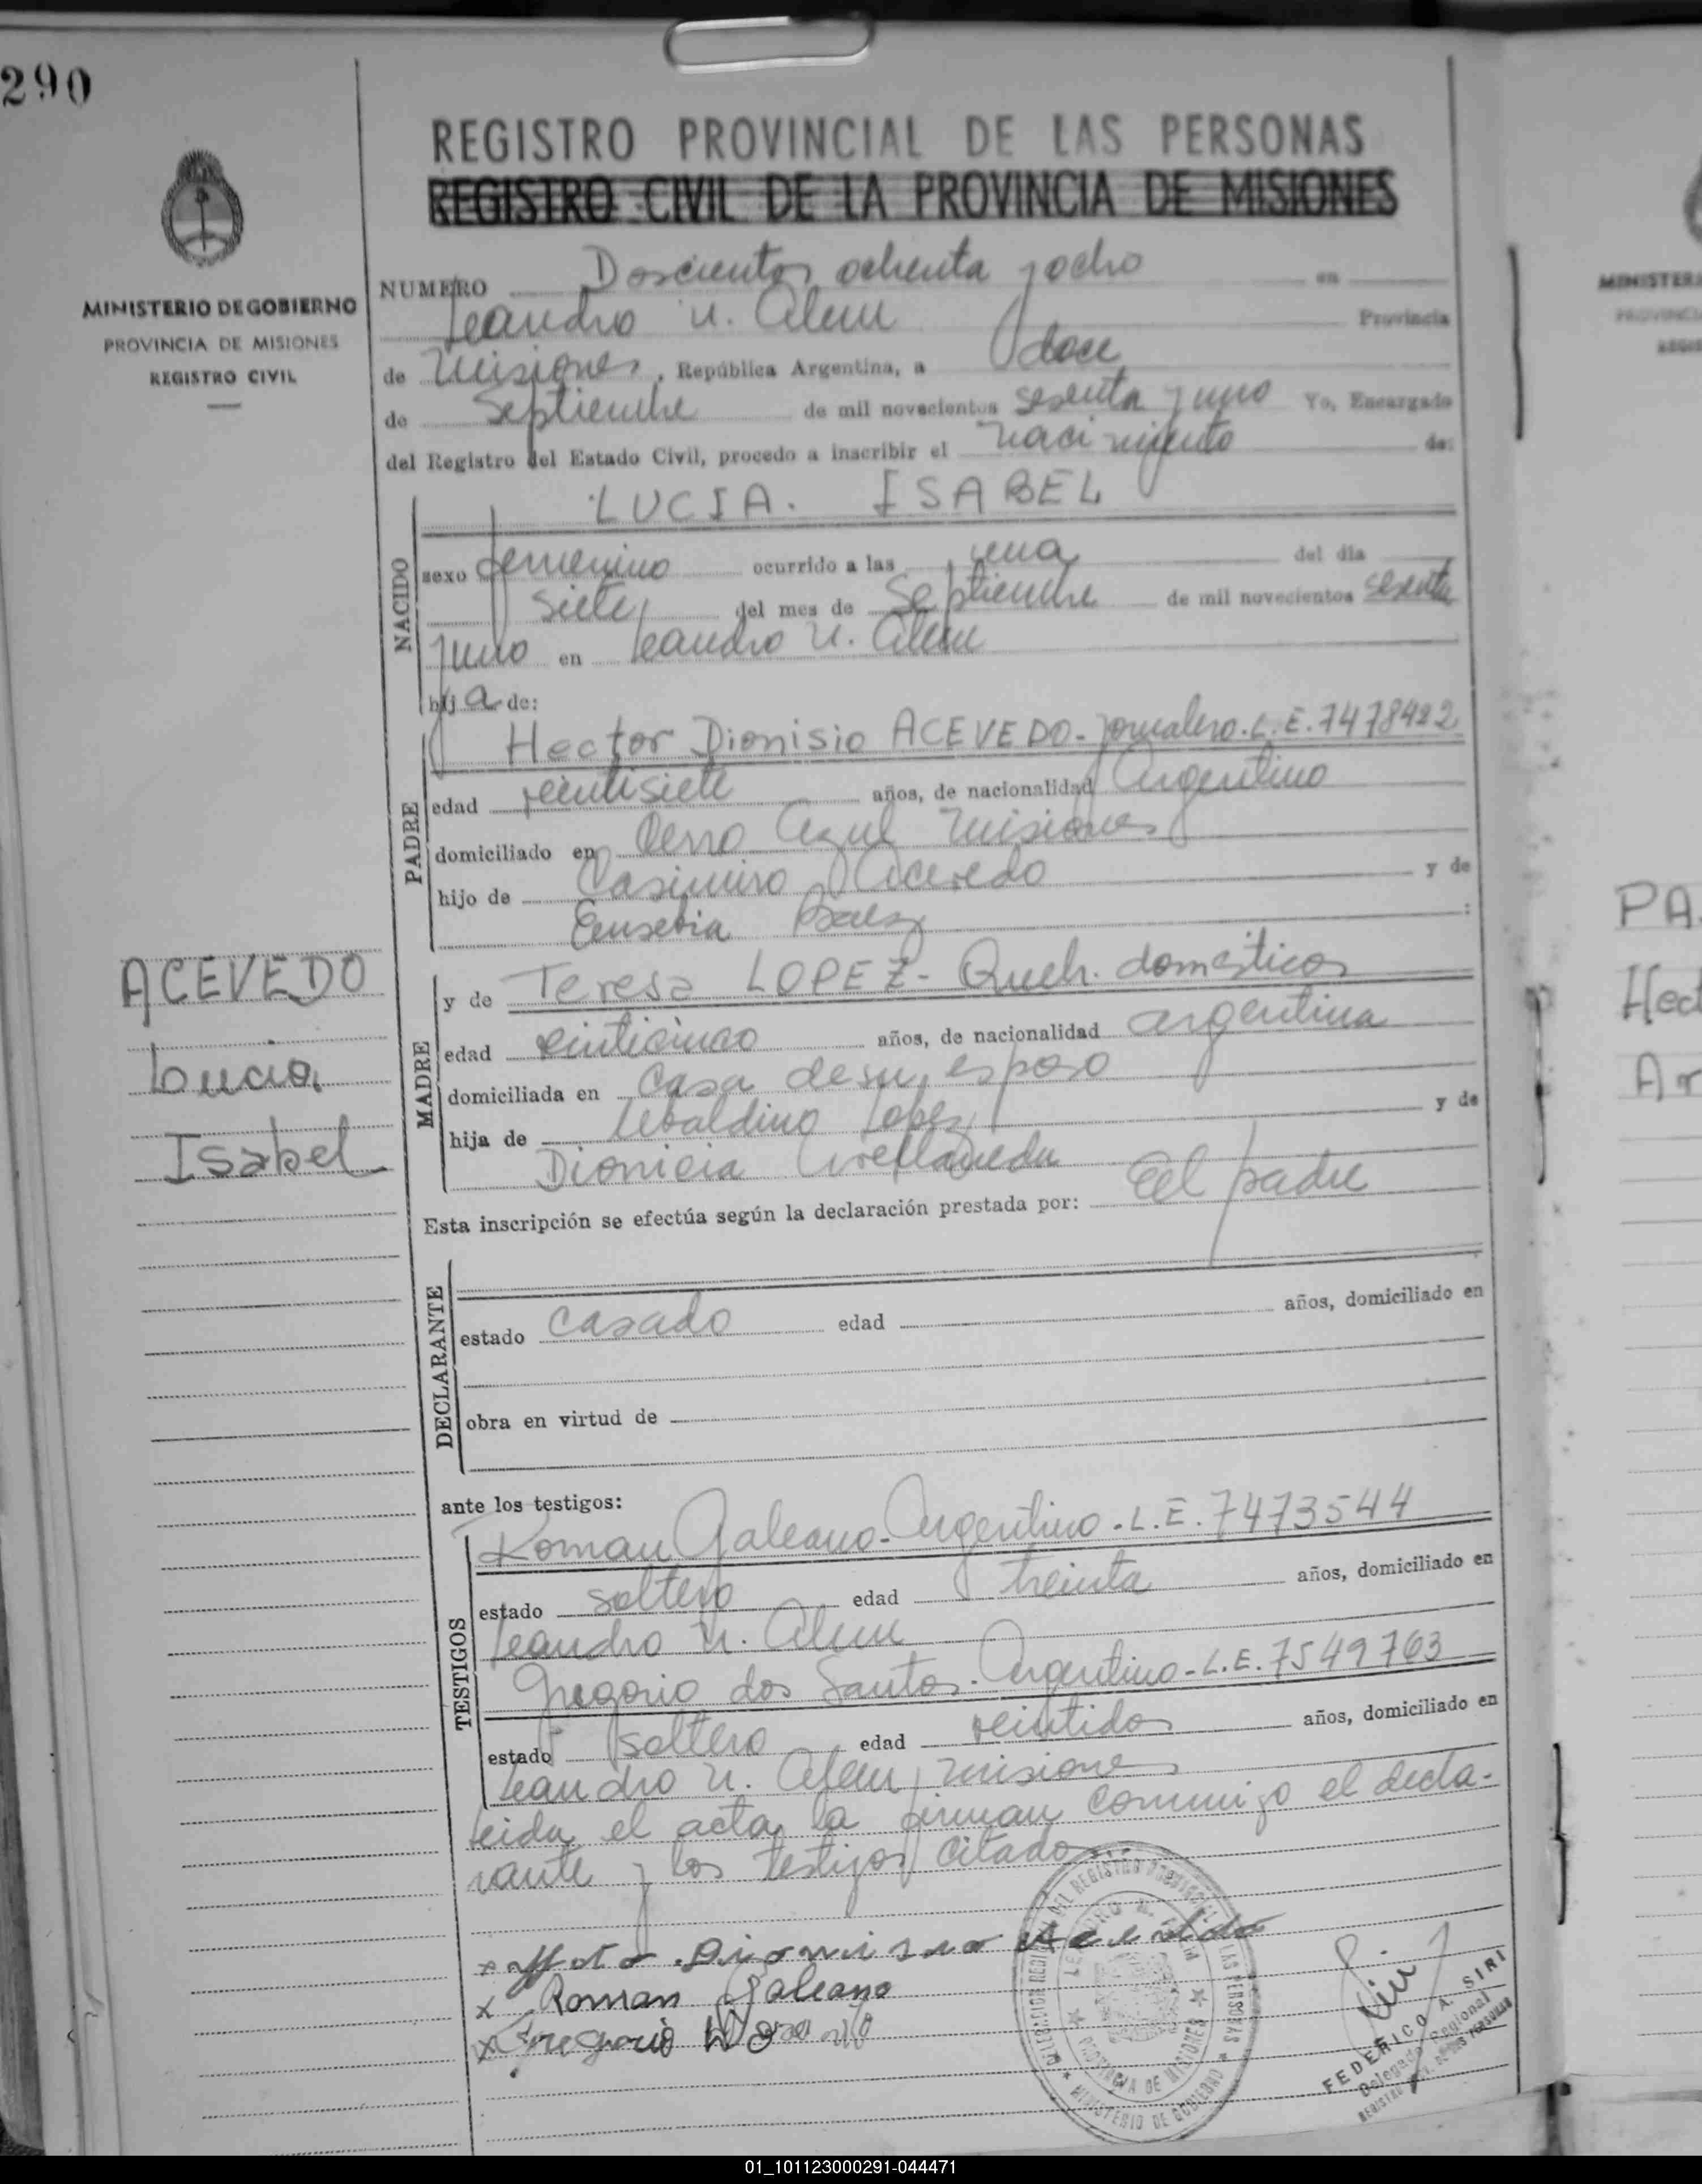 290
REGISTRO PROVINCIAL DE LAS PERSONAS
REGISTRO CIVIL DE LA PROVINCIA DE MISIONES
MINISTERIO DE GOBIERNO
PROVINCIA DE MISIONES
REGISTRO CIVIL
NUMERO Doscientos ochenta y ocho en
Leandro N. Alem Provincia
de Misiones, República Argentina, a doce
de Septiembre de mil novecientos sesenta y uno Yo, Encargado
del Registro del Estado Civil, procedo a inscribir el nacimiento de:
NACIDO
LUCIA. ISABEL
sexo femenino ocurrido a las una del dia
siete, del mes de Septiembre de mil novecientos sesenta
y uno en Leandro N. Alem
hija de:
PADRE
Hector Dionisio ACEVEDO - jornalero. L.E. 7478422
edad veintisiete años, de nacionalidad Argentino
domiciliado en Cerro Azul Misiones
hijo de Casimiro Acevedo y de
Eusebia Baez :
ACEVEDO
Lucia
Isabel
MADRE
y de Teresa LOPEZ - Queh. domesticos
edad veinticinco años, de nacionalidad argentina
domiciliada en casa de su esposo
hija de Ubaldino Lopez y de
Dionicia Avellaneda
Esta inscripción se efectúa según la declaración prestada por: El padre
DECLARANTE
estado casado edad años, domiciliado en
obra en virtud de
ante los testigos:
TESTIGOS
Roman Galeano - Argentino - L.E. 7473544
estado soltero edad treinta años, domiciliado en
Leandro N. Alem
Gregorio dos Santos. Argentino - L.E. 7549763
estado soltero edad veintidos años, domiciliado en
Leandro N. Alem, Misiones
Leida el acta, la firman conmigo el decla-
rante y los testigos citados
x Dionisio Acevedo
x Roman Galeano
x Gregorio
DELEGACION REGIONAL DEL REGISTRO PROVINCIAL DE LAS PERSONAS
LEANDRO N. ALEM
PROVINCIA DE MISIONES
MINISTERIO DE GOBIERNO
FEDERICO A. SIRI
Delegado Regional
MINISTER
PA
Hect
Ar
01_101123000291-044471